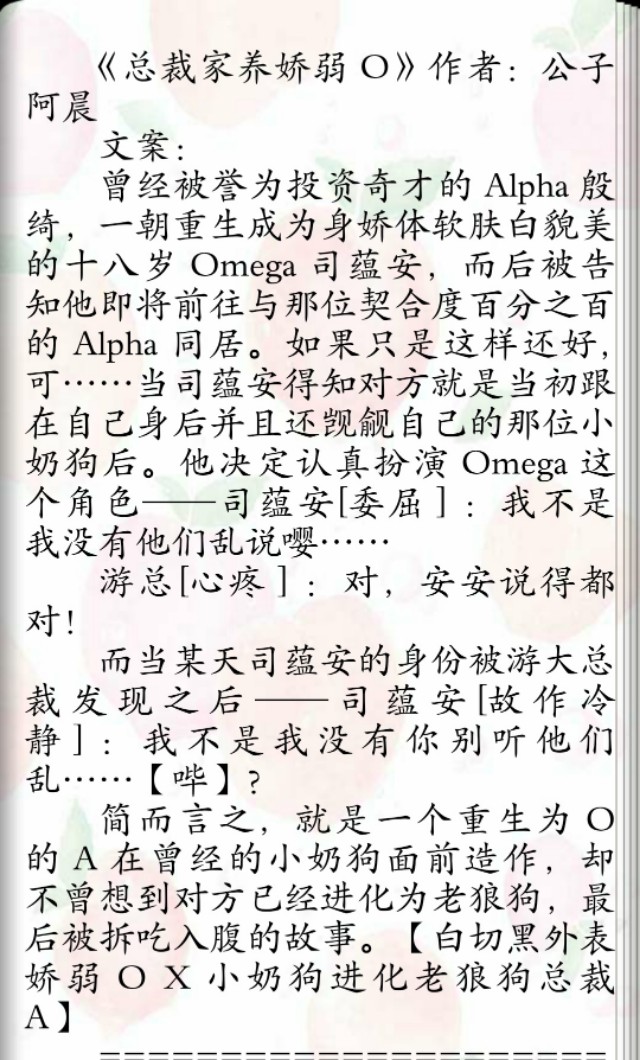 《总裁家养娇弱 O》作者：公子
阿晨
文案：
曾经被誉为投资奇才的 Alpha 殷
绮，一朝重生成为身娇体软肤白貌美
的十八岁 Omega 司蕴安，而后被告
知他即将前往与那位契合度百分之百
的 Alpha 同居。如果只是这样还好，
可……当司蕴安得知对方就是当初跟
在自己身后并且还觊觎自己的那位小
奶狗后。他决定认真扮演 Omega 这
个角色——司蕴安[委屈]：我不是
我没有他们乱说嘤……
游总[心疼]：对，安安说得都
对！
而当某天司蕴安的身份被游大总
裁发现之后——司蕴安[故作冷
静]：我不是我没有你别听他们
乱……【哔】？
简而言之，就是一个重生为 O
的 A 在曾经的小奶狗面前造作，却
不曾想到对方已经进化为老狼狗，最
后被拆吃入腹的故事。【白切黑外表
娇弱 O X 小奶狗进化老狼狗总裁
A】
=====================